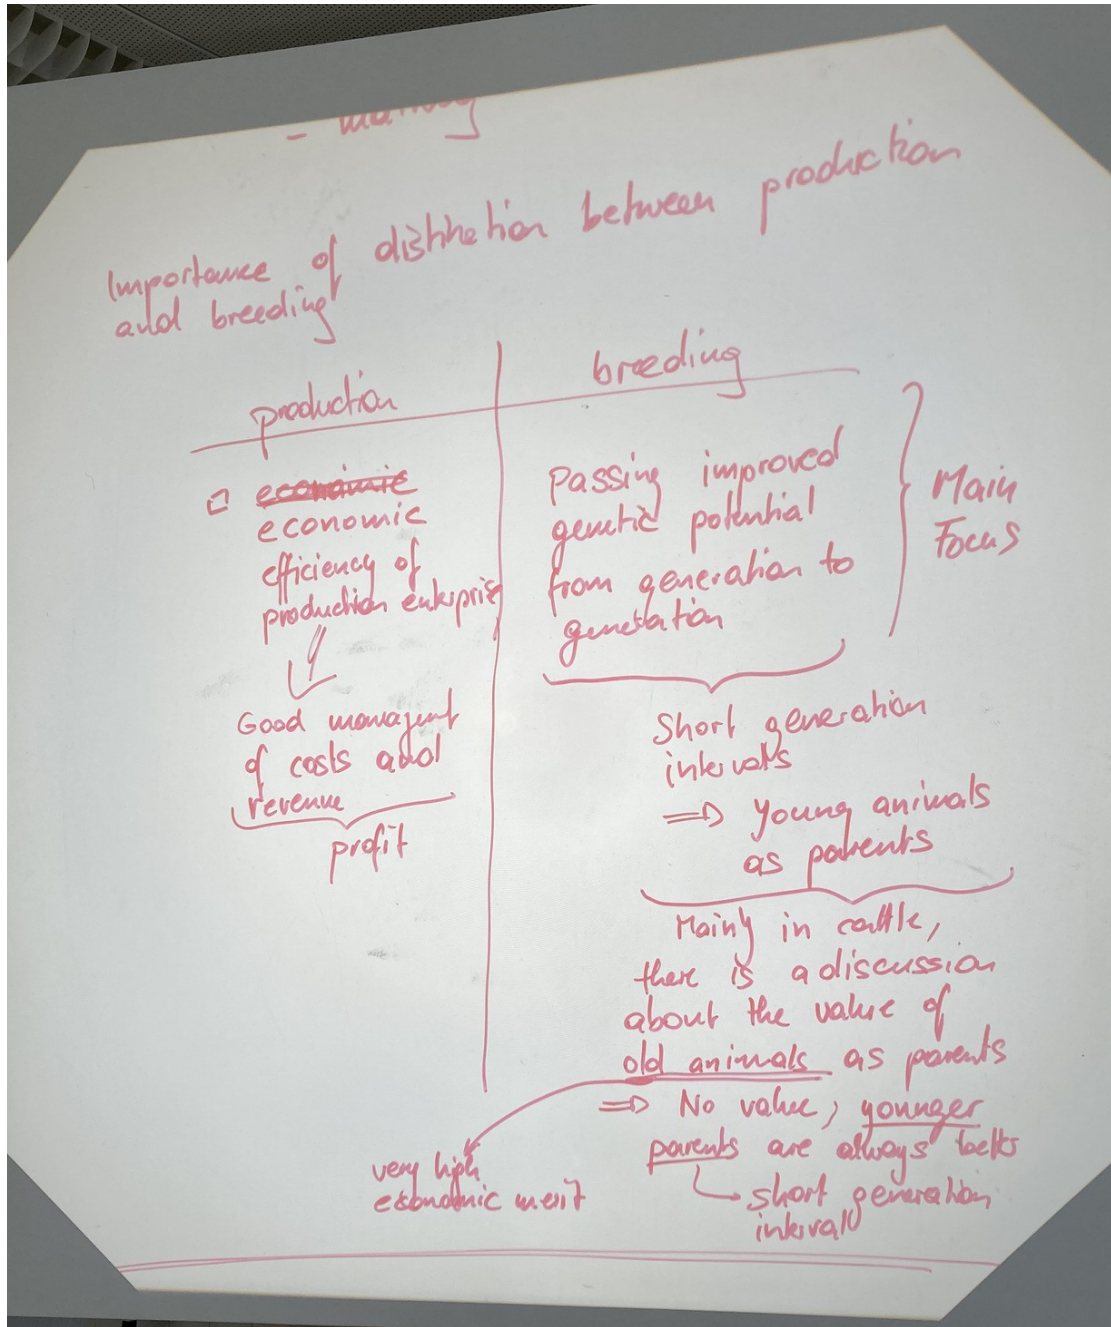 Importance of distinction between production
and breeding
production
breeding
economic
economic
efficiency of
production enterprise
Good managent
of costs and
revenue
profit
Passing improved
genetic potential
from generation to
generation
Main
Focus
Short generation
intervals
⇒ Young animals
as parents
Mainly in cattle,
there is a discussion
about the value of
old animals as parents
⇒ No value, younger
parents are always better
short generation
interval
very high
economic merit